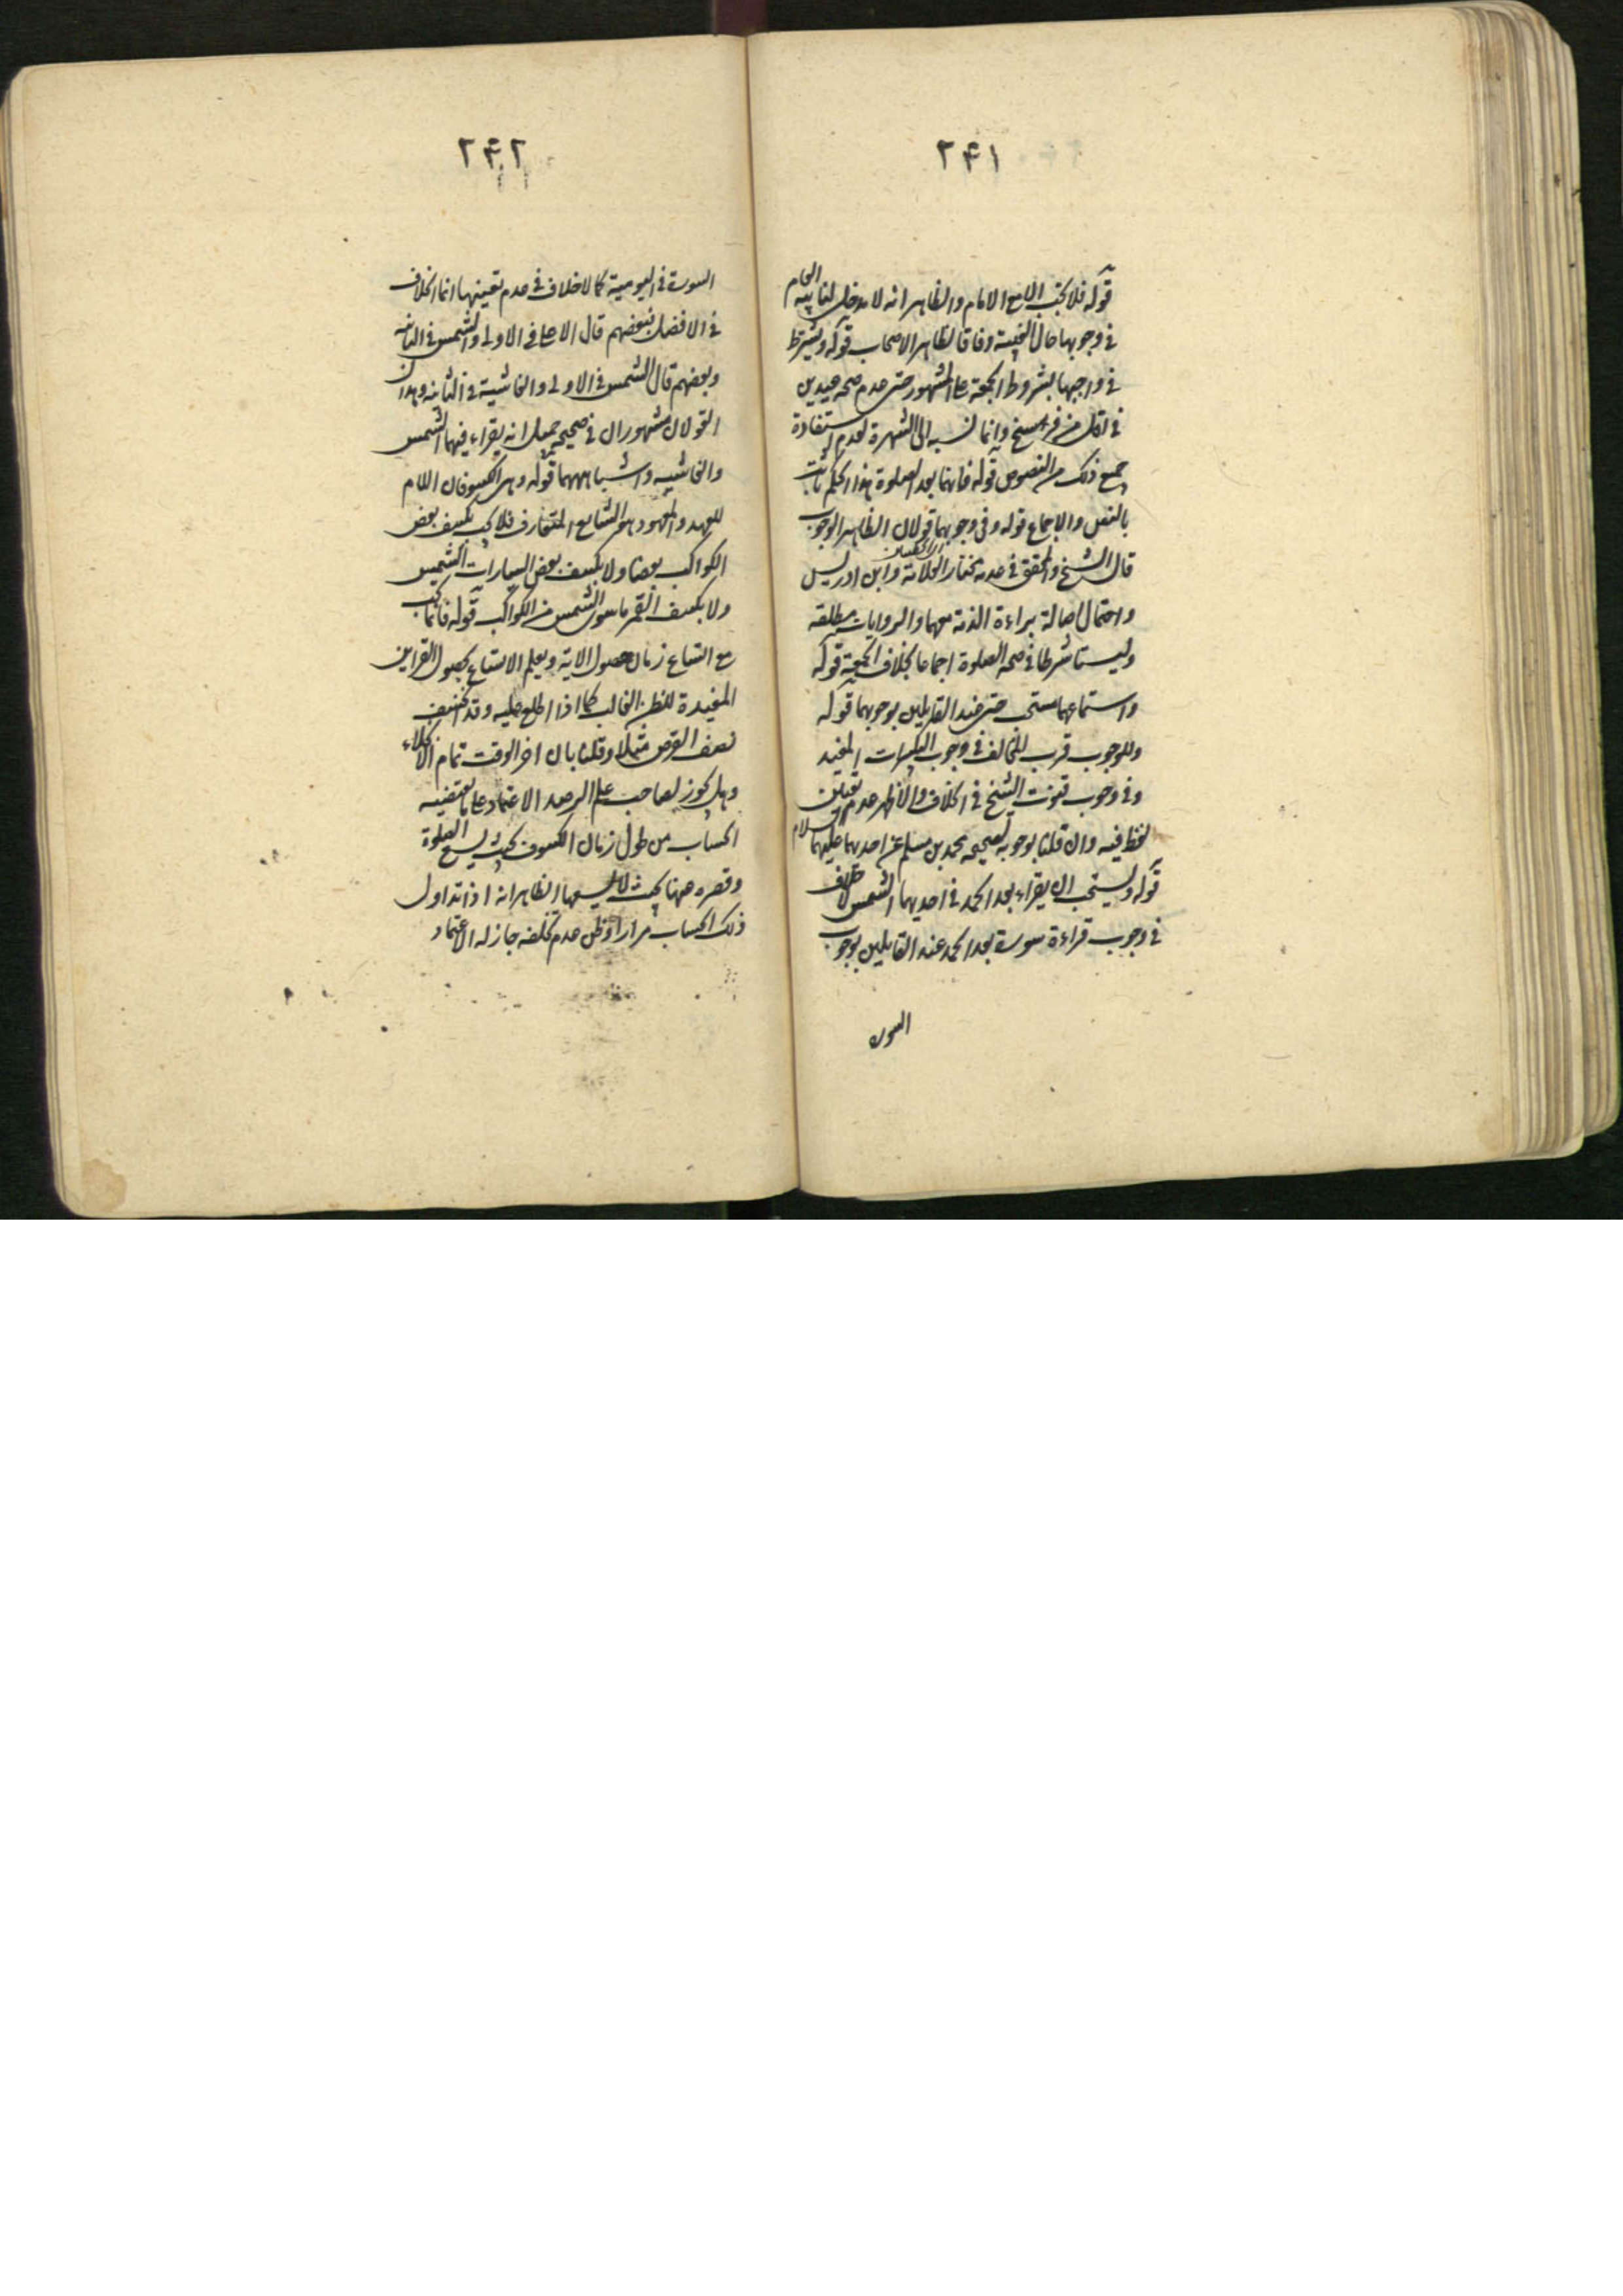 ٢۴١
قوله فلا تجب الا مع الامام والظاهر انه لا مدخل لنائبه العام
في وجوبها حال الغيبة وفاقا لظاهر الاصحاب قوله ويشترط
في واجبها بشروط الجمعة على المشهور حتى عدم صحة عيدين
في اقل من فرسخ وانما نسبه الى الشهرة لعدم استفادة
جميع ذلك من النصوص قوله فانهما بعد الصلوة هذا الحكم ثابت
بالنص والاجماع قوله وفي وجوبهما قولان الظاهر الوجوب
قال الشيخ والمحقق في عدمه مختار العلامة وابن ادريس
واحتمال اصالة براءة الذمة معهما والروايات مطلقة
وليستا شرطا في صحة الصلوة اجماعا بخلاف الجمعة قوله
واستماعهما مستحب حتى عند القايلين بوجوبهما قوله
وللوجوب قرب المخالف في وجوب التكبيرات المفيد
وفي وجوب قنوت الشيخ في الخلاف والاظهر عدم تعيين
لفظ فيه وان قلنا بوجوبه لصحيحة محمد بن مسلم عن احدهما عليهما السلام
قوله ويستحب ان يقراء بعد الحمد في احديهما الشمس لا خلاف
في وجوب قراءة سورة بعد الحمد عند القايلين بوجوب
السورة
٢۴٢
السورة في اليومية كما لا خلاف في عدم تعيينها انما الخلاف
في الافضل فبعضهم قال الاعلى في الاولى والشمس في الثانية
وبعضهم قال الشمس في الاولى والغاشية في الثانية وهذان
القولان مشهوران في صحيحة جميل انه يقراء فيهما الشمس
والغاشية واشباههما قوله وهي الكسوفان اللام
للعهد والمعهود هو الشايع المتعارف فلا يجب بكسف بعض
الكواكب بعضا ولا بكسف بعض السيارات الشمس
ولا بكسف القمر ما سوى الشمس من الكواكب قوله فانما تجب
مع اتساع زمان حصول الاية ويعلم الاتساع بحصول القراين
المفيدة للظن الغالب كما اذا اطلع عليه وقد انكسف
نصف القرص مثلا وقلنا بان اخر الوقت تمام الانجلاء
وهل يجوز لصاحب علم الرصد الاعتماد على ما يقتضيه
الحساب من طول زمان الكسوف بحيث يسع الصلوة
وقصره ههنا بحيث لا يسعها الظاهر انه اذا تداول
ذلك الحساب مرارا وظن عدم تخلفه جاز له الاعتماد